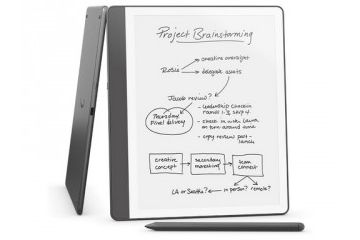 Project Brainstorming
creative oversight
Rosie
delegate assets
Jacob review?
Thursday
Pixel delivery
- leadership check in
rounds 1-3, step 4
- check in with Lana
on turn around time
- copy review post-
launch
creative
concept
secondary
marketing
team
connect
LA or Seattle?
in person?
remote?